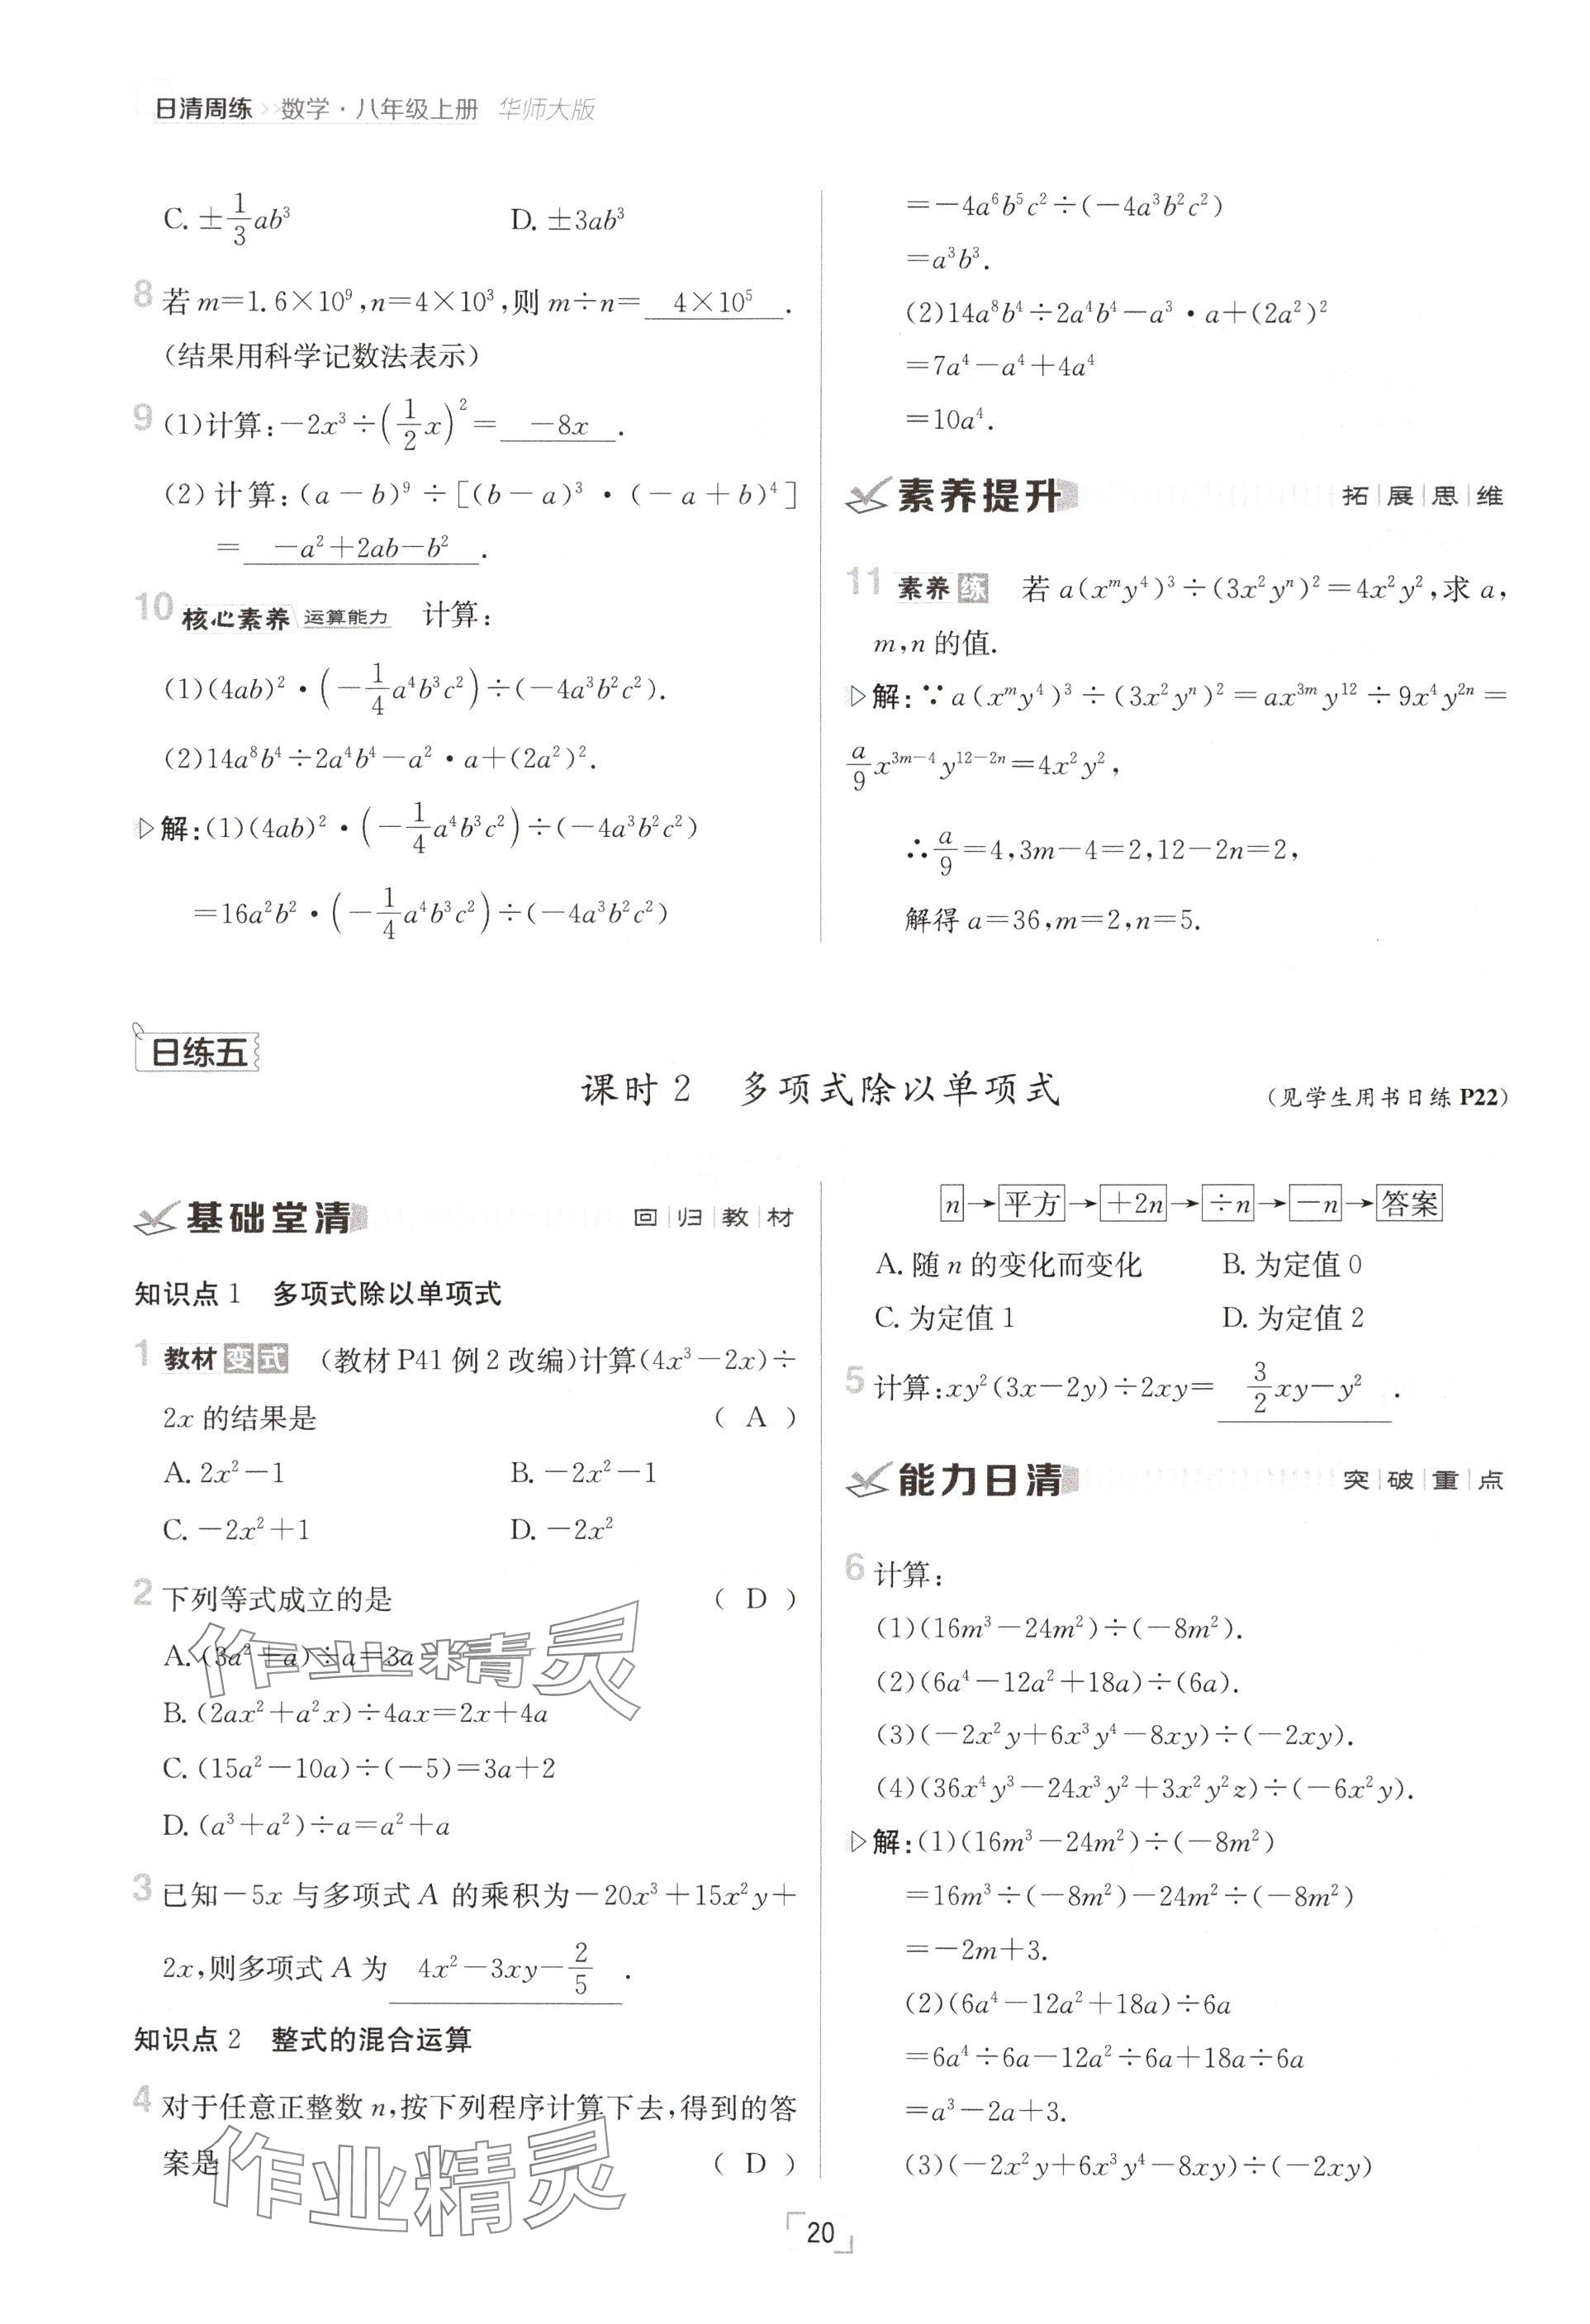 日清周练 >> 数学·八年级上册 华师大版
C. ±1/3ab³ D. ±3ab³
8 若 m=1.6×10⁹,n=4×10³,则 m÷n= 4×10⁵ .
(结果用科学记数法表示)
9 (1)计算:-2x³÷(1/2x)²= -8x .
(2)计算:(a-b)⁹÷[(b-a)³·(-a+b)⁴]
= -a²+2ab-b² .
10 核心素养 运算能力 计算:
(1)(4ab)²·(-1/4a⁴b³c²)÷(-4a³b²c²).
(2)14a⁸b⁴÷2a⁴b⁴-a²·a+(2a²)².
▷解:(1)(4ab)²·(-1/4a⁴b³c²)÷(-4a³b²c²)
=16a²b²·(-1/4a⁴b³c²)÷(-4a³b²c²)
=-4a⁶b⁵c²÷(-4a³b²c²)
=a³b³.
(2)14a⁸b⁴÷2a⁴b⁴-a³·a+(2a²)²
=7a⁴-a⁴+4a⁴
=10a⁴.
素养提升 拓|展|思|维
11 素养练 若 a(xᵐy⁴)³÷(3x²yⁿ)²=4x²y²,求 a,
m,n 的值.
▷解:∵a(xᵐy⁴)³÷(3x²yⁿ)²=ax³ᵐy¹²÷9x⁴y²ⁿ=
a/9x³ᵐ⁻⁴y¹²⁻²ⁿ=4x²y²,
∴a/9=4,3m-4=2,12-2n=2,
解得 a=36,m=2,n=5.
日练五
课时2 多项式除以单项式 (见学生用书日练 P22)
基础堂清 回|归|教|材
知识点1 多项式除以单项式
1 教材变式 (教材 P41 例2 改编)计算(4x³-2x)÷
2x 的结果是 ( A )
A. 2x²-1 B. -2x²-1
C. -2x²+1 D. -2x²
2 下列等式成立的是 ( D )
A. (3a²+a)÷a=3a
B. (2ax²+a²x)÷4ax=2x+4a
C. (15a²-10a)÷(-5)=3a+2
D. (a³+a²)÷a=a²+a
3 已知-5x 与多项式 A 的乘积为-20x³+15x²y+
2x,则多项式 A 为 4x²-3xy-2/5 .
知识点2 整式的混合运算
4 对于任意正整数 n,按下列程序计算下去,得到的答
案是 ( D )
n→平方→+2n→÷n→-n→答案
A. 随 n 的变化而变化 B. 为定值 0
C. 为定值 1 D. 为定值 2
5 计算:xy²(3x-2y)÷2xy= 3/2xy-y² .
能力日清 突|破|重|点
6 计算:
(1)(16m³-24m²)÷(-8m²).
(2)(6a⁴-12a²+18a)÷(6a).
(3)(-2x²y+6x³y⁴-8xy)÷(-2xy).
(4)(36x⁴y³-24x³y²+3x²y²z)÷(-6x²y).
▷解:(1)(16m³-24m²)÷(-8m²)
=16m³÷(-8m²)-24m²÷(-8m²)
=-2m+3.
(2)(6a⁴-12a²+18a)÷6a
=6a⁴÷6a-12a²÷6a+18a÷6a
=a³-2a+3.
(3)(-2x²y+6x³y⁴-8xy)÷(-2xy)
作业精灵
作业精灵
20